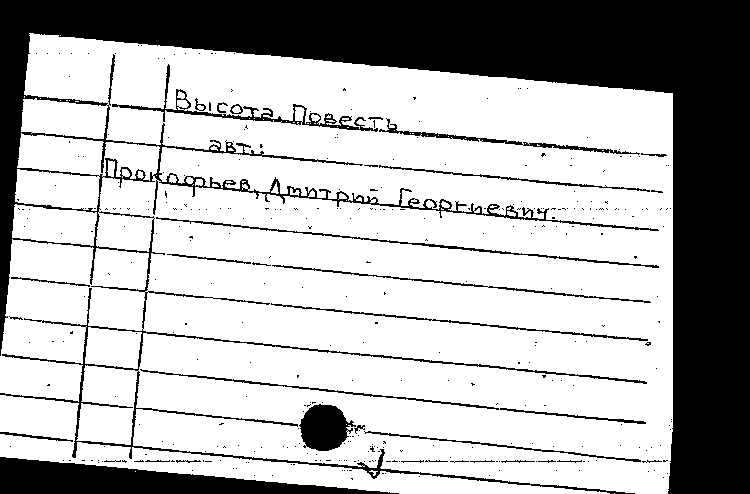 Высота. Повесть
авт.:
Прокофьев, Дмитрий Георгиевич.